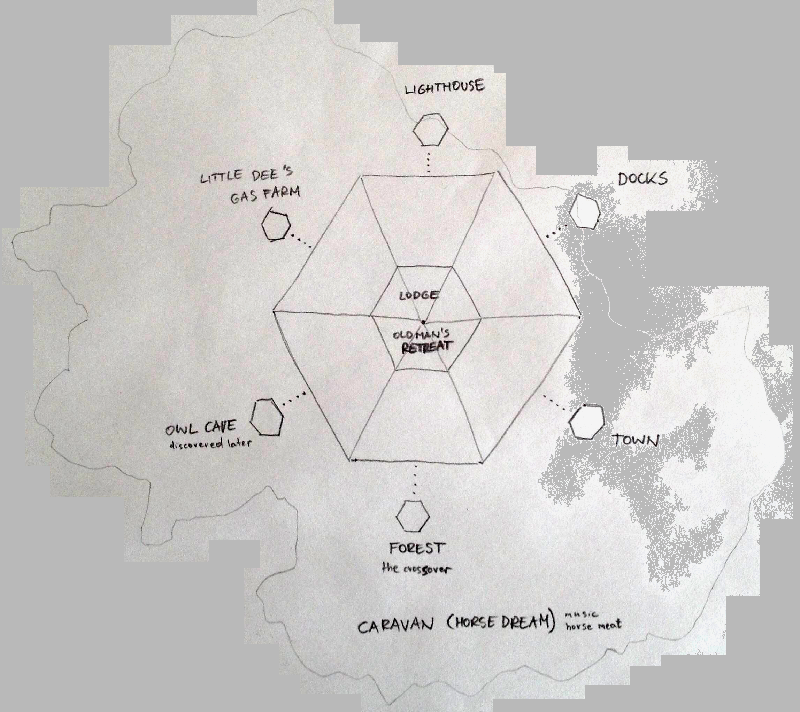 LIGHTHOUSE
LITTLE DEE'S
GAS FARM
DOCKS
LODGE
OLD MAN'S
RETREAT
OWL CAVE
discovered later
TOWN
FOREST
the crossover
CARAVAN (HORSE DREAM)
music
horse meat